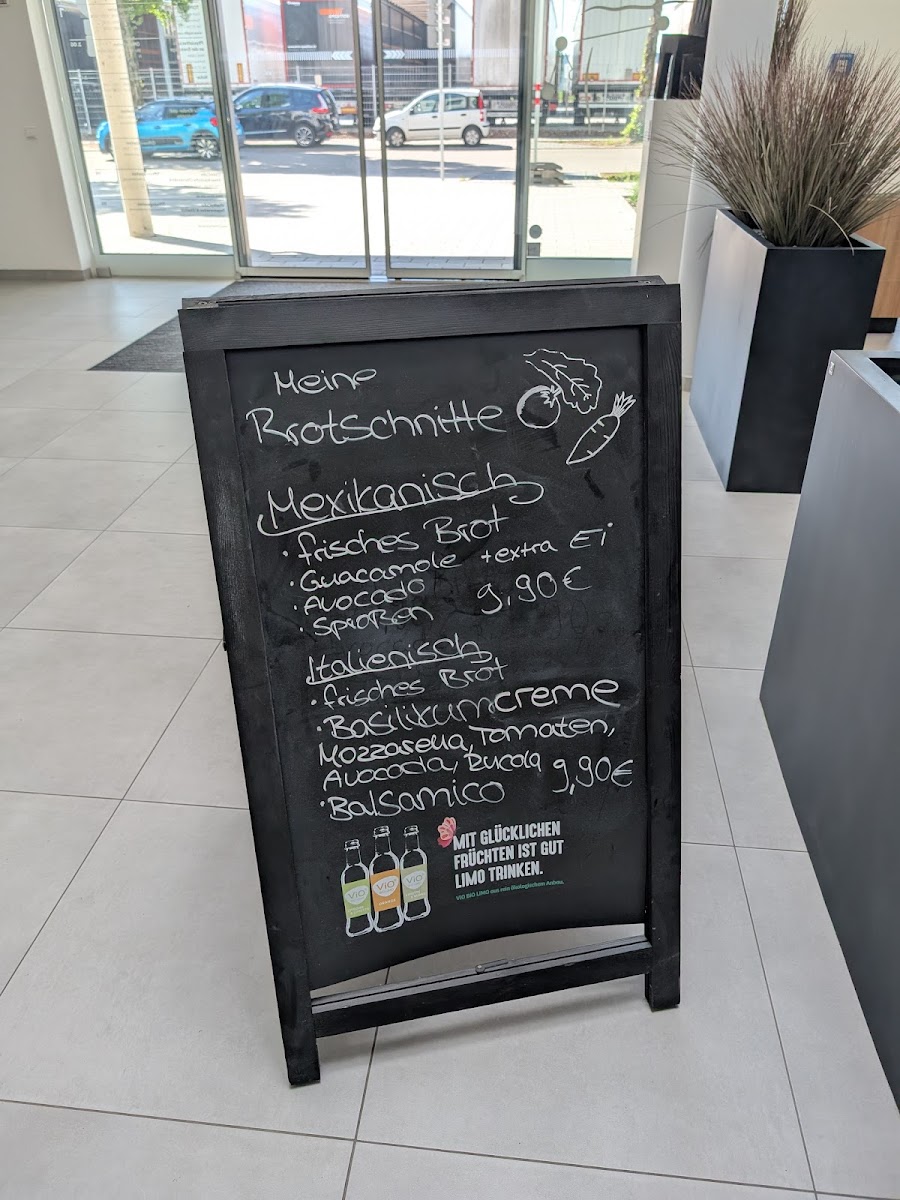 Meine
Brotschnitte
Mexikanisch
• frisches Brot
• Guacamole + extra Ei
• Avocado 9,90€
• Sproßen
Italienisch
• frisches Brot
• Basilikumcreme
Mozzarella, Tomaten,
Avocado, Rucola 9,90€
• Balsamico
MIT GLÜCKLICHEN
FRÜCHTEN IST GUT
LIMO TRINKEN.
VIO BIO LIMO aus rein ökologischem Anbau.
ViO
ViO
ViO